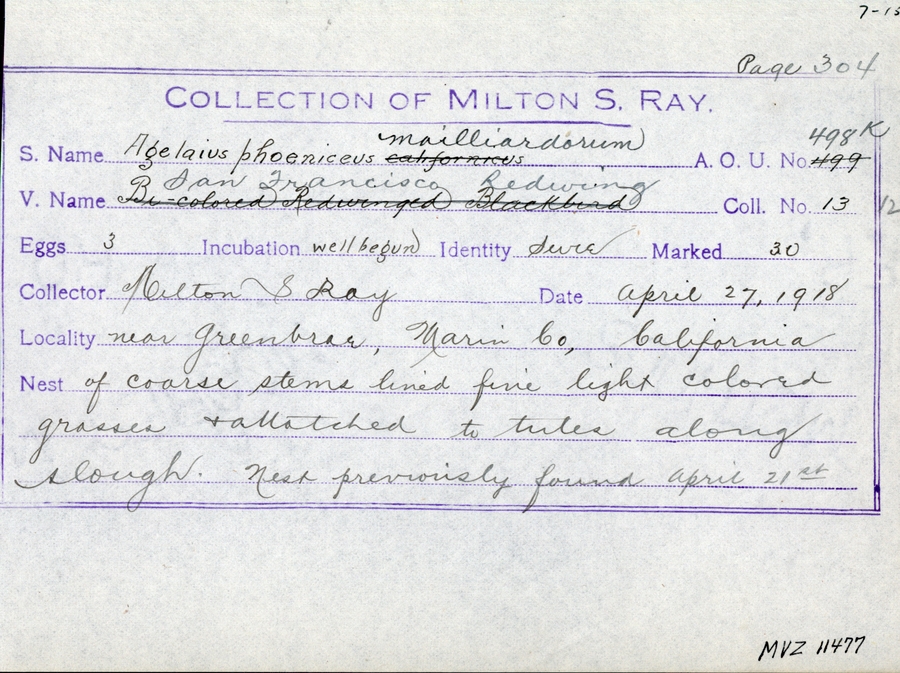 7-15
Page 304
COLLECTION OF MILTON S. RAY.
mailliardorum 498K
S. Name Agelaius phoeniceus californicus A. O. U. No. 499
San Francisco Redwing
V. Name Bi-colored Redwinged Blackbird Coll. No. 13 12
Eggs 3 Incubation well begun Identity Sure Marked 30
Collector Milton S Ray Date April 27, 1918
Locality near Greenbrae, Marin Co, California
Nest of coarse stems lined fine light colored
grasses & attatched to tules along
slough. Nest previously found April 21st
MVZ 11477